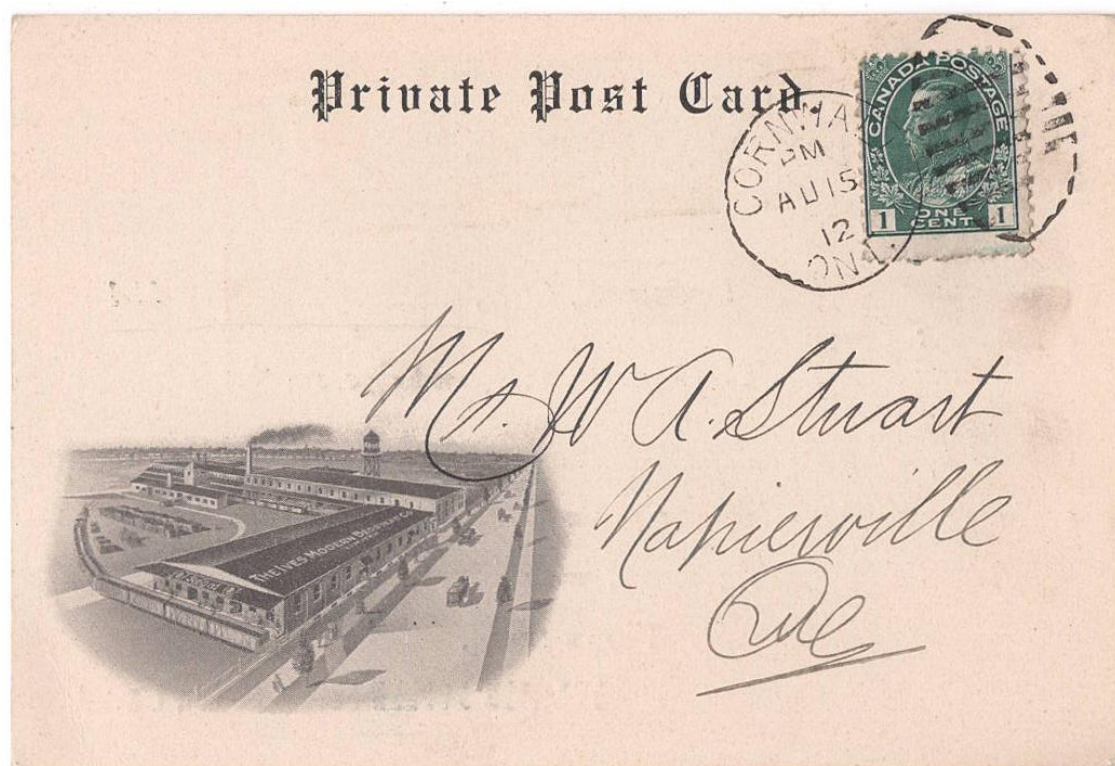 Private Post Card.
CORNWALL
PM
AU 15
12
ONT.
CANADA POSTAGE
1 ONE CENT 1
Mr. W A. Stuart
Napierville
Que
THE IVES MODERN BEDSTEAD